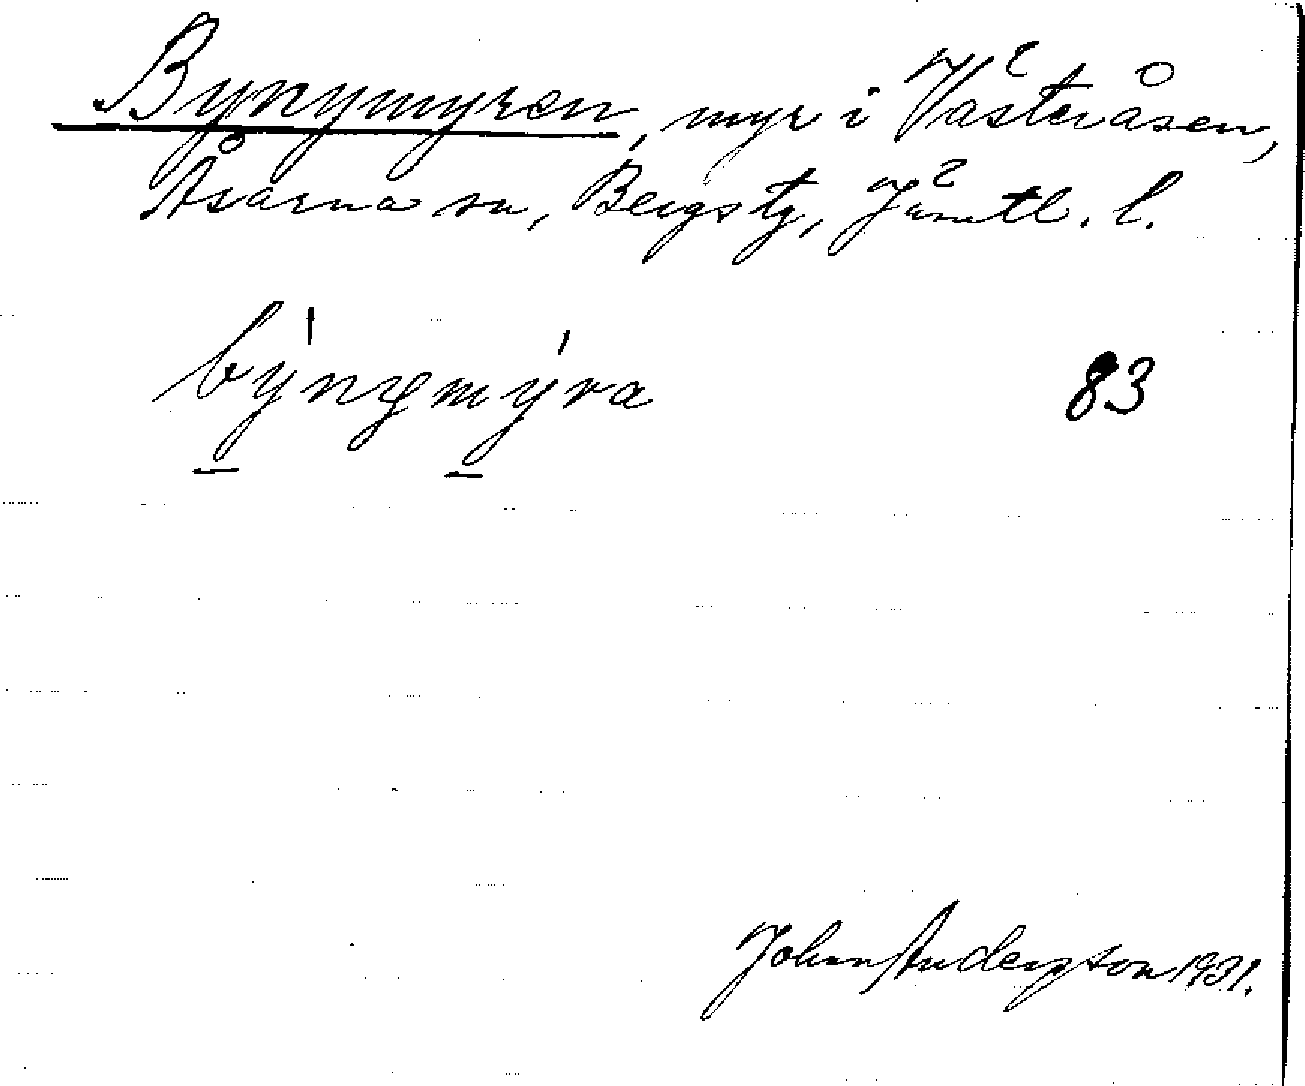 Bynymyren, myr i Västeråsen,
Åsarna sn, Bergs tg, Jämtl. l.
býnymýra 83
John Anderson 1931.